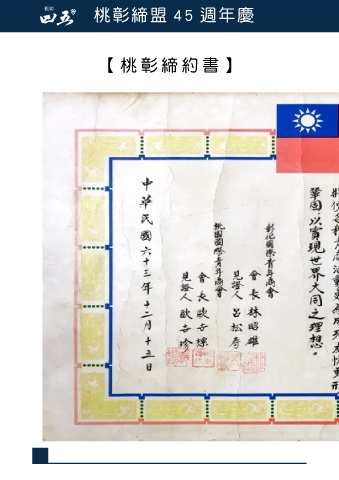 桃彰
四五
桃彰締盟 45 週年慶
【桃彰締約書】
鞏固以實現世界大同之理想。
彰化國際青年商會
會長 林昭雄
見證人 呂松壽
桃園國際青年商會
會長
見證人
中華民國六十三年十二月十五日